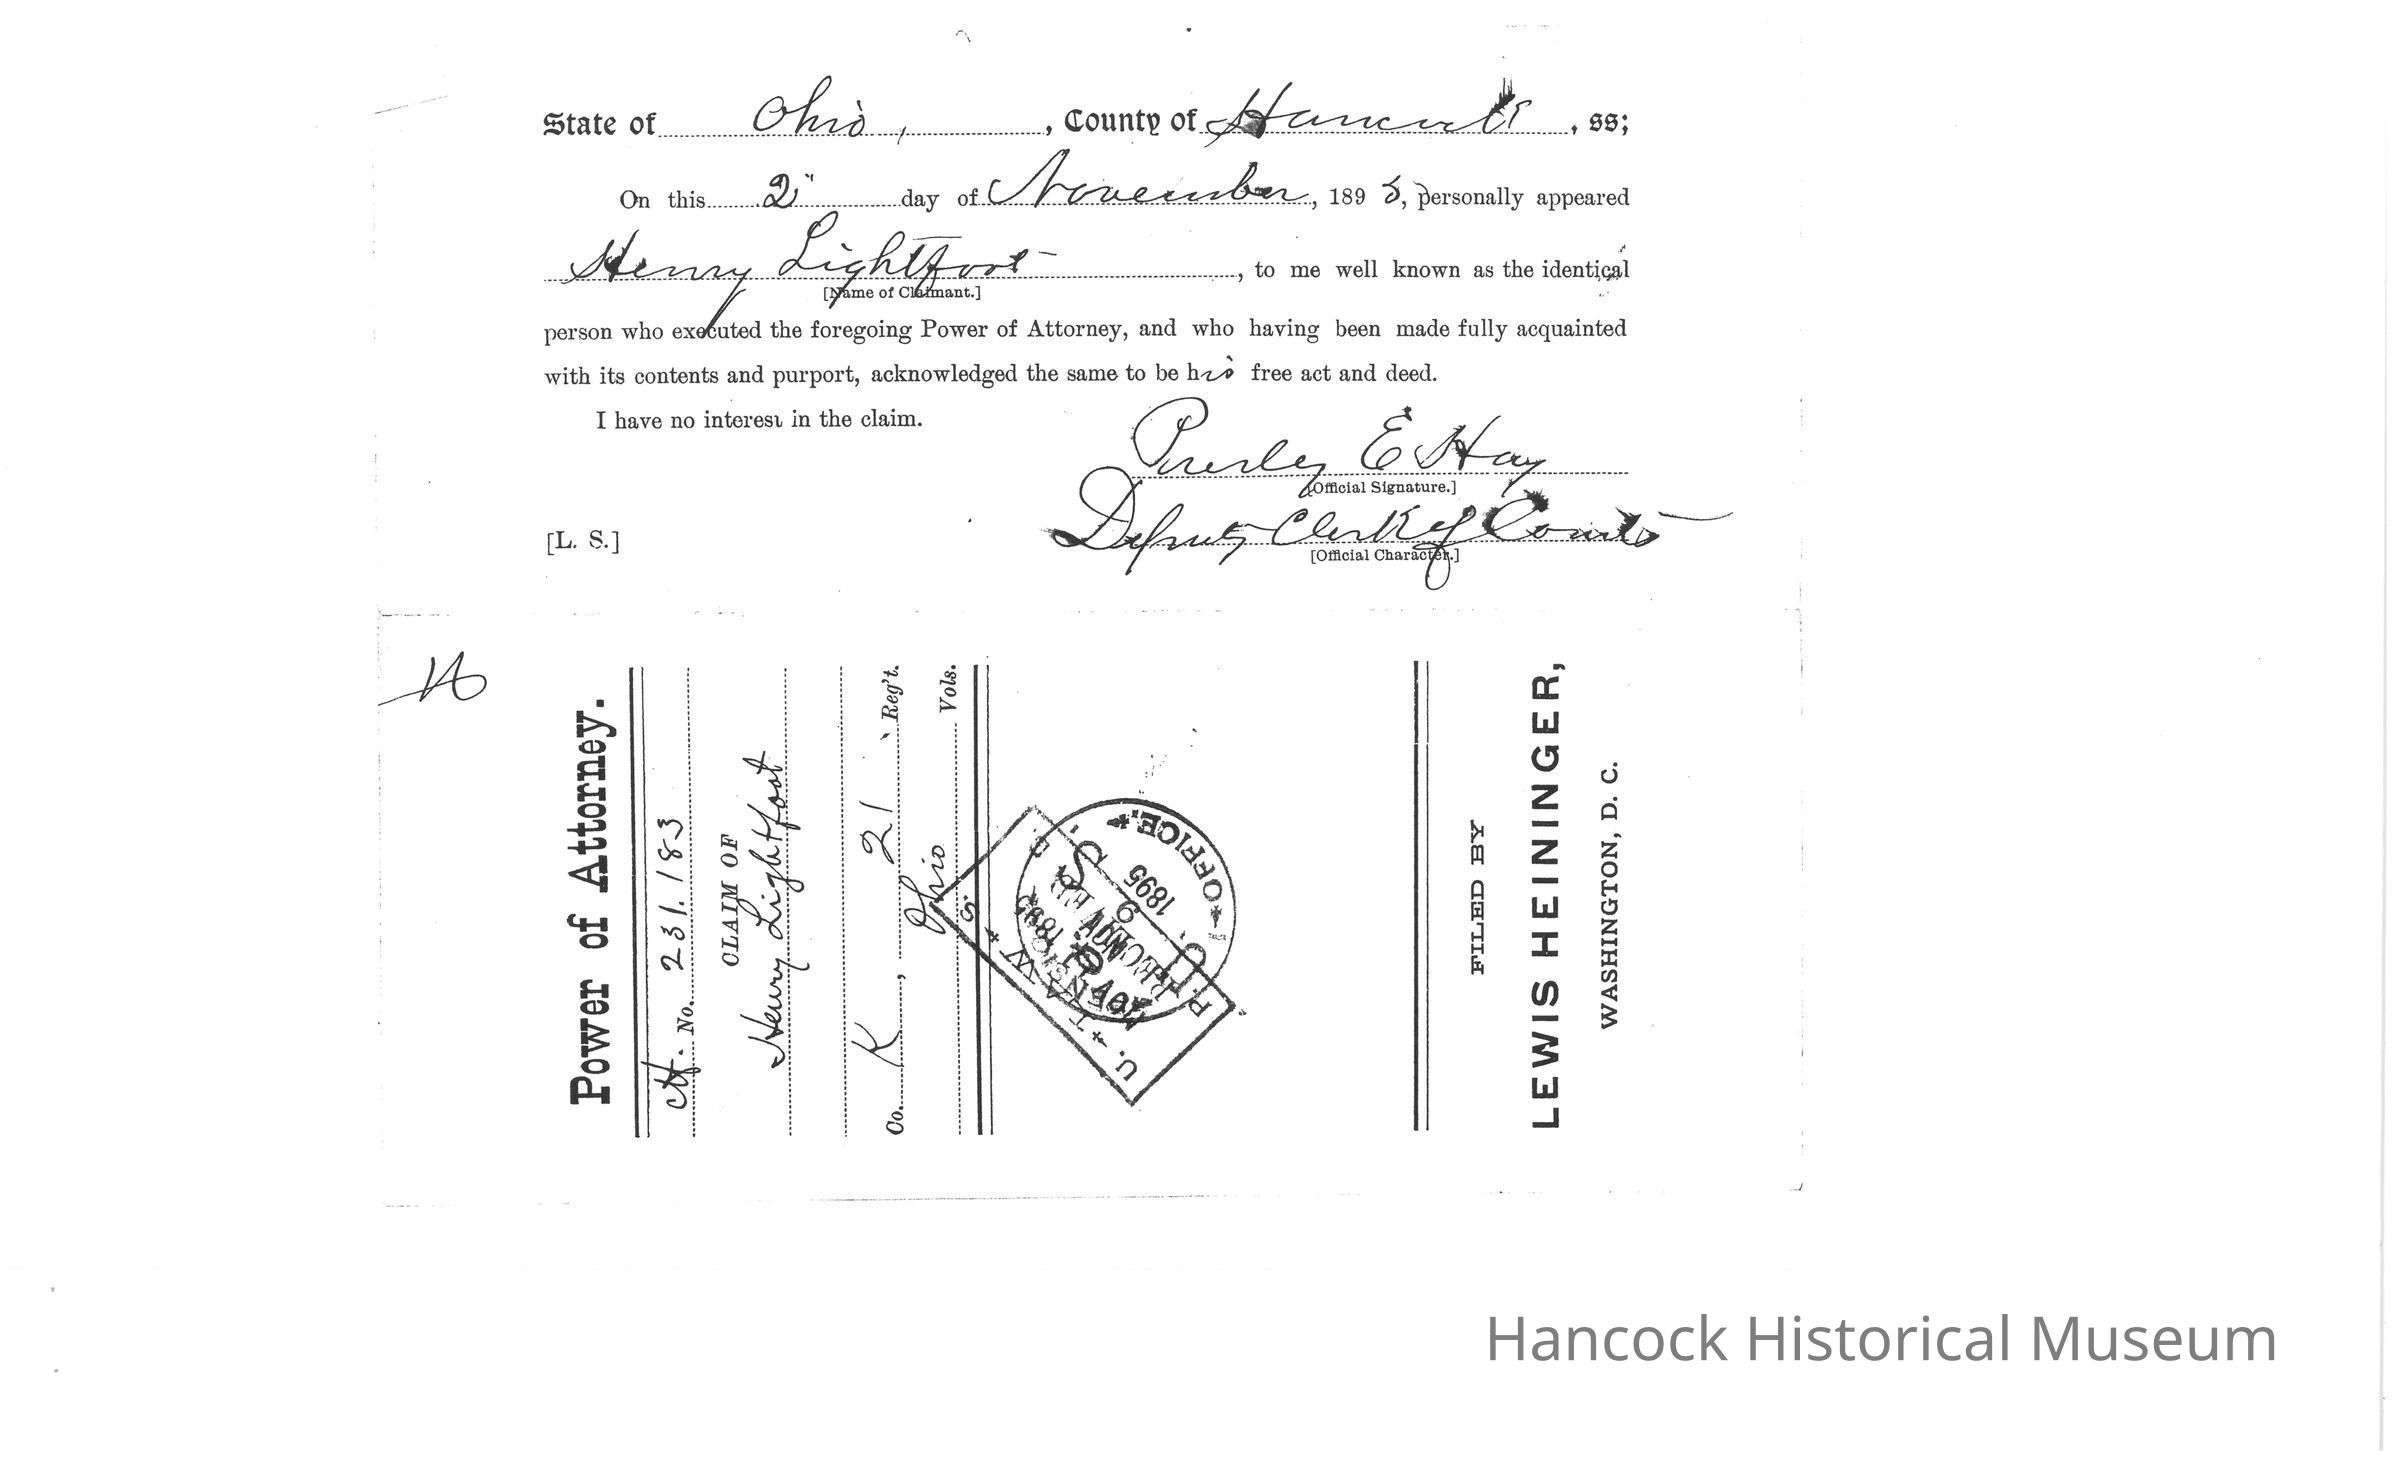 State of Ohio, , County of Hancock , ss;
On this 2" day of November, 1895, personally appeared
Henry Lightfoot , to me well known as the identical
[Name of Claimant.]
person who executed the foregoing Power of Attorney, and who having been made fully acquainted
with its contents and purport, acknowledged the same to be his free act and deed.
I have no interest in the claim.
Presley E Hay
[Official Signature.]
Deputy Clerk of Courts
[L. S.]
[Official Character.]
Power of Attorney.
Ctf. No. 231.183
CLAIM OF
Henry Lightfoot
Co. K , 21 Reg't.
Ohio Vols.
U. S.
OFFICE
1895
FILED BY
LEWIS HEININGER,
WASHINGTON, D. C.
Hancock Historical Museum